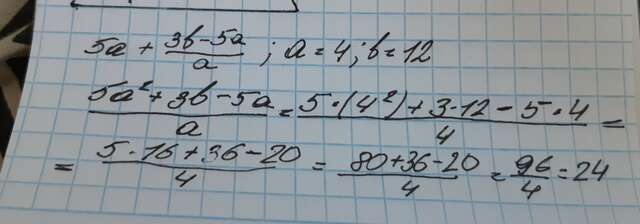 5a + (3b-5a)/a ; a=4; b=12
(5a²+3b-5a)/a = (5·(4²)+3·12-5·4)/4 =
= (5·16+36-20)/4 = (80+36-20)/4 = 96/4 = 24